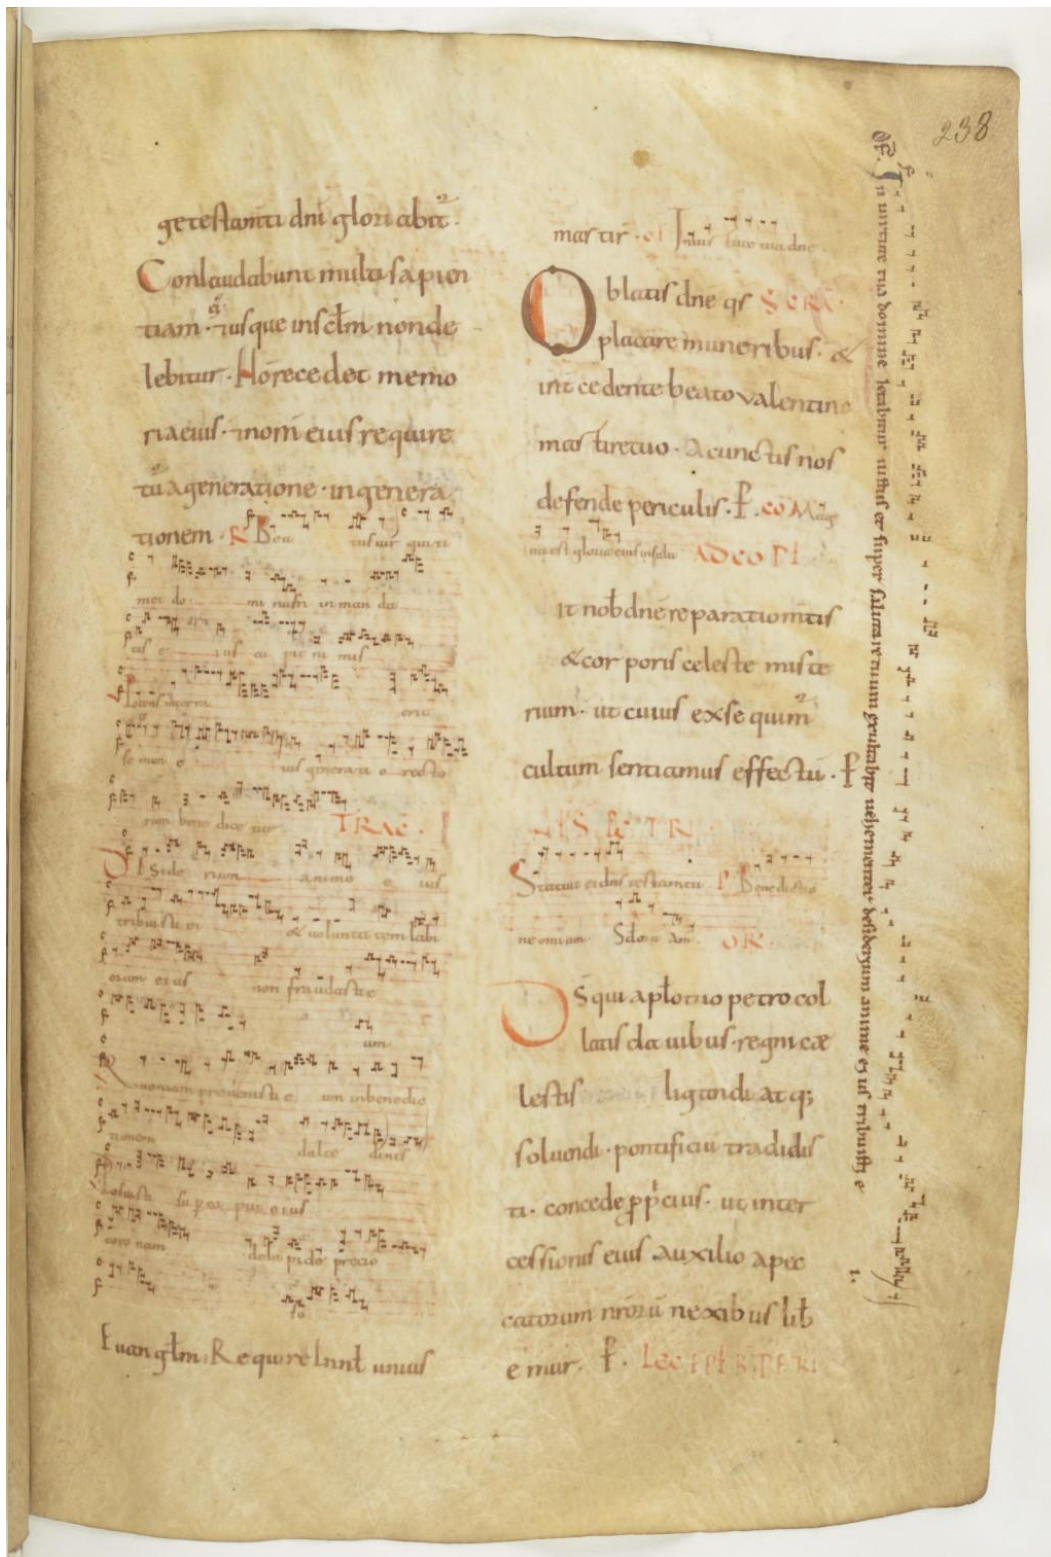 238
ge testamti dni gloriabit᷑.
Conlaudabunt multi sapien
tiam · ⁊ usque in sc̄lm non de
lebitur · Hōrecedet memo
ria eius · ⁊ nom̄ eius require
tū a generatione · in genera
tionem · R Bea tus vir qui ti
met do mi num in man da
tis e ius cu pit ni mis
Potens in terra erit
se men e ius generati o recto
rum bene dice tur TRAC ·
Deside rium anime e ius
tribuisti ei & uolunta tem labi
orum eius non fraudaste
um
Quoniam prevenisti e um in benedic
tionem dulce dinis
Posuisti su per ca put eius
coro nam de la pide precio
so
Euanglm. Require in nat̄ unius
martir · of In uirtute tua dne
Oblatis dne qs SECR̄ ·
placare muneribus · &
int̄cedente beato valentino
martire tuo · A cunctis nos
defende periculis · P̄ . cō Mag
na est gloria eius in salu AD CO PL
Sit nob̄ dne reparatio mtis
& corporis celeste miste
rium · ut cuius exsequim᷑
cultum sentiamus effectū · P̄
Statuit ei dns testamtū P Benedictio
ne omium OR
Ds qui aplo tuo petro col
latis clauibus · regni cæ
lestis ligandi atq;
soluendi · pontificiū tradidis
ti · concede p̄p̄cius · ut inter
cessionis eius auxilio a pec
catorum nr̄orū nexibus lib̄
emur · P̄ . LEC EPL B PETRI
of. In uirtute tua domine letabitur iustus et super salutare tuum exultabit uehementer desiderium anime ejus tribuisti e
i.